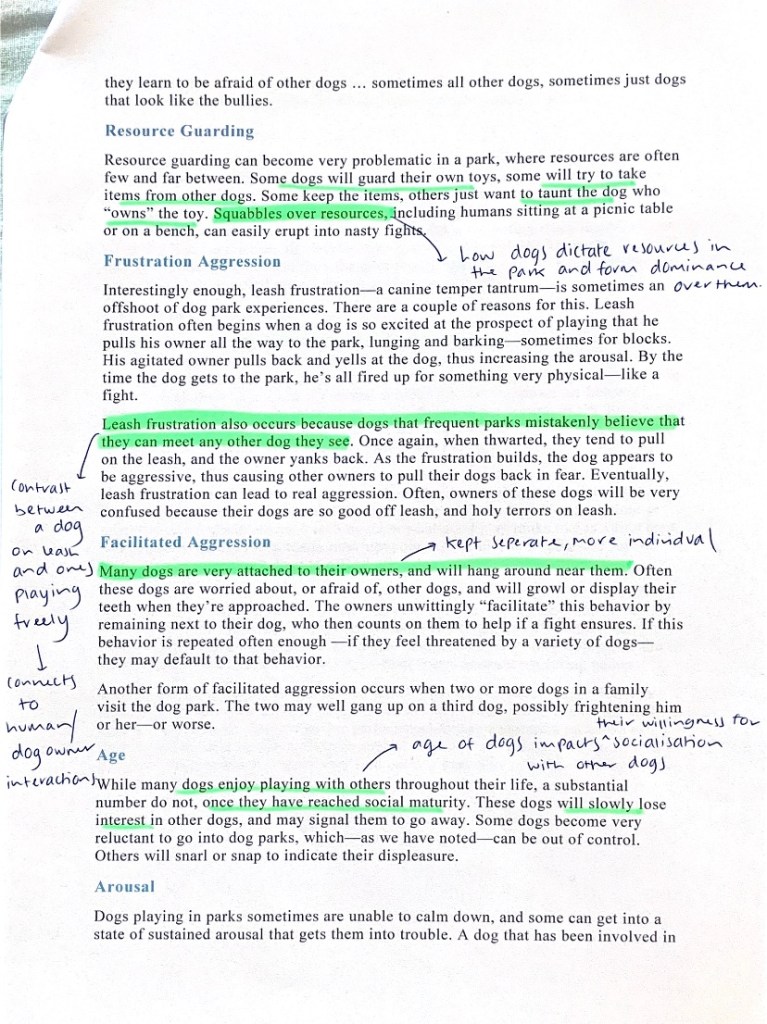 they learn to be afraid of other dogs … sometimes all other dogs, sometimes just dogs
that look like the bullies.
Resource Guarding
Resource guarding can become very problematic in a park, where resources are often
few and far between. Some dogs will guard their own toys, some will try to take
items from other dogs. Some keep the items, others just want to taunt the dog who
“owns” the toy. Squabbles over resources, including humans sitting at a picnic table
or on a bench, can easily erupt into nasty fights.
how dogs dictate resources in
the park and form dominance
over them.
Frustration Aggression
Interestingly enough, leash frustration—a canine temper tantrum—is sometimes an
offshoot of dog park experiences. There are a couple of reasons for this. Leash
frustration often begins when a dog is so excited at the prospect of playing that he
pulls his owner all the way to the park, lunging and barking—sometimes for blocks.
His agitated owner pulls back and yells at the dog, thus increasing the arousal. By the
time the dog gets to the park, he’s all fired up for something very physical—like a
fight.
Leash frustration also occurs because dogs that frequent parks mistakenly believe that
they can meet any other dog they see. Once again, when thwarted, they tend to pull
on the leash, and the owner yanks back. As the frustration builds, the dog appears to
be aggressive, thus causing other owners to pull their dogs back in fear. Eventually,
leash frustration can lead to real aggression. Often, owners of these dogs will be very
confused because their dogs are so good off leash, and holy terrors on leash.
contrast
between
a dog
on leash
and ones
playing
freely
connects
to
human/
dog owner
interactions
Facilitated Aggression
kept seperate, more individual
Many dogs are very attached to their owners, and will hang around near them. Often
these dogs are worried about, or afraid of, other dogs, and will growl or display their
teeth when they’re approached. The owners unwittingly “facilitate” this behavior by
remaining next to their dog, who then counts on them to help if a fight ensures. If this
behavior is repeated often enough —if they feel threatened by a variety of dogs—
they may default to that behavior.
Another form of facilitated aggression occurs when two or more dogs in a family
visit the dog park. The two may well gang up on a third dog, possibly frightening him
or her—or worse.
Age
their willingness for
age of dogs impacts ^ socialisation
with other dogs
While many dogs enjoy playing with others throughout their life, a substantial
number do not, once they have reached social maturity. These dogs will slowly lose
interest in other dogs, and may signal them to go away. Some dogs become very
reluctant to go into dog parks, which—as we have noted—can be out of control.
Others will snarl or snap to indicate their displeasure.
Arousal
Dogs playing in parks sometimes are unable to calm down, and some can get into a
state of sustained arousal that gets them into trouble. A dog that has been involved in